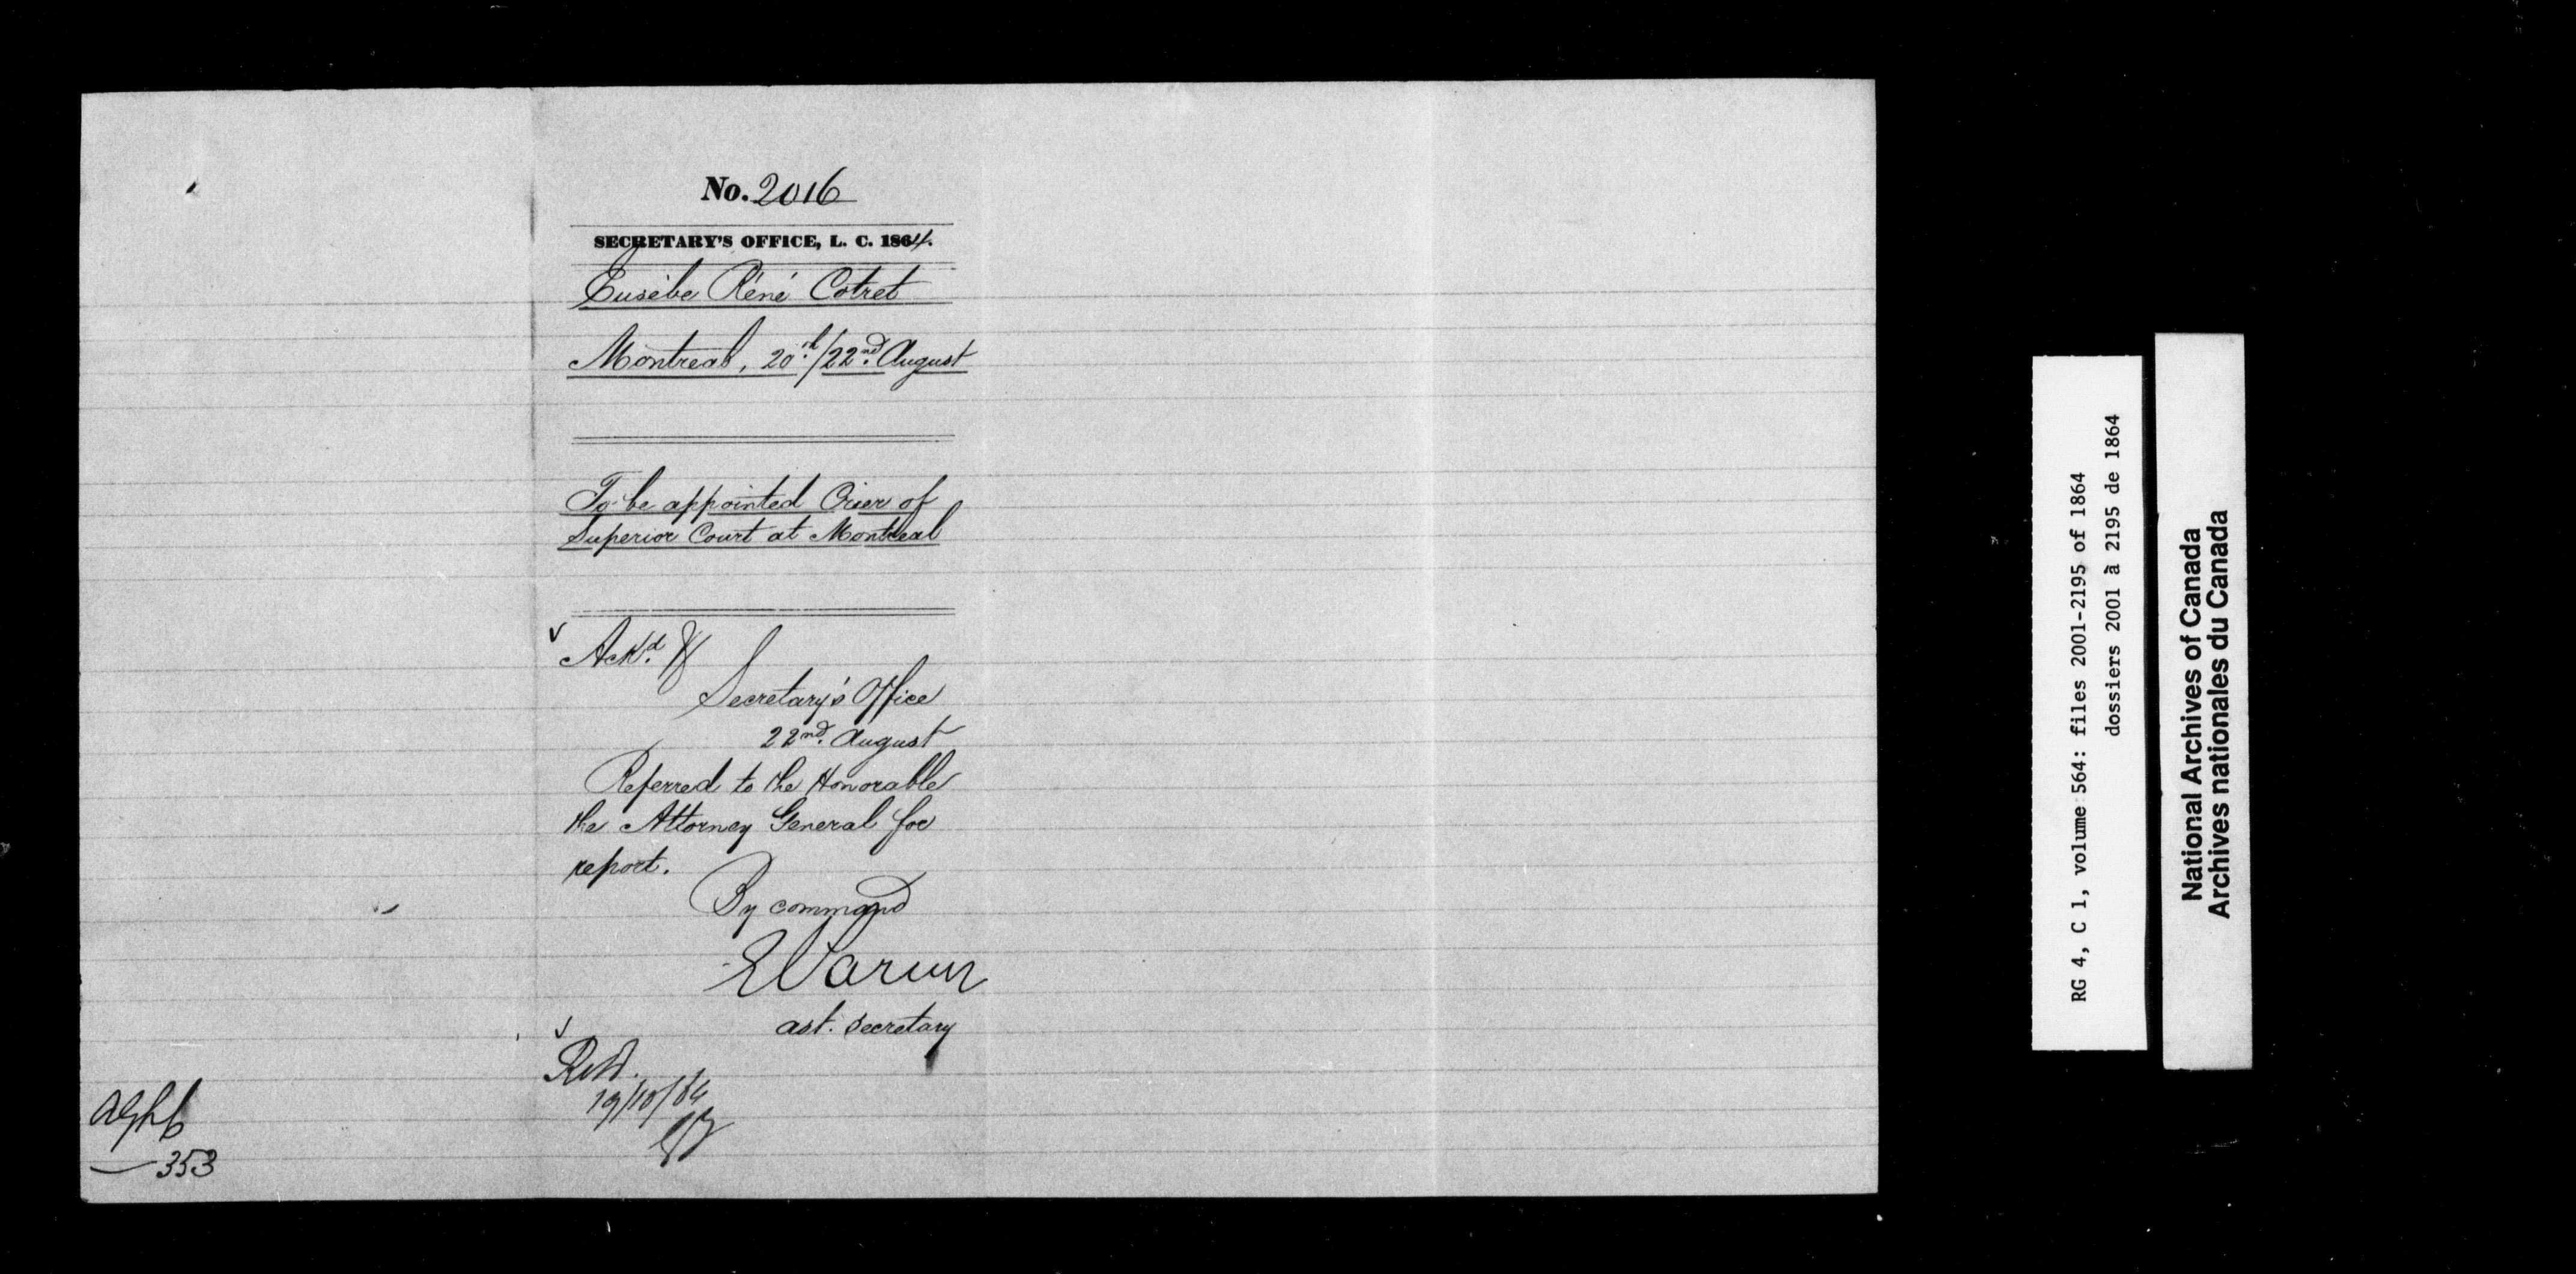 No. 2016
SECRETARY'S OFFICE, L. C. 1864.
Eusèbe Réné Cotret
Montreal, 20th/22nd August
To be appointed Crier of
Superior Court at Montreal
Ackd.
Secretary's Office
22nd August
Referred to the Honorable
the Attorney General for
report.
By command
ast. Secretary
19/10/64
353
RG 4, C 1, volume 564: files 2001-2195 of 1864
dossiers 2001 à 2195 de 1864
National Archives of Canada
Archives nationales du Canada